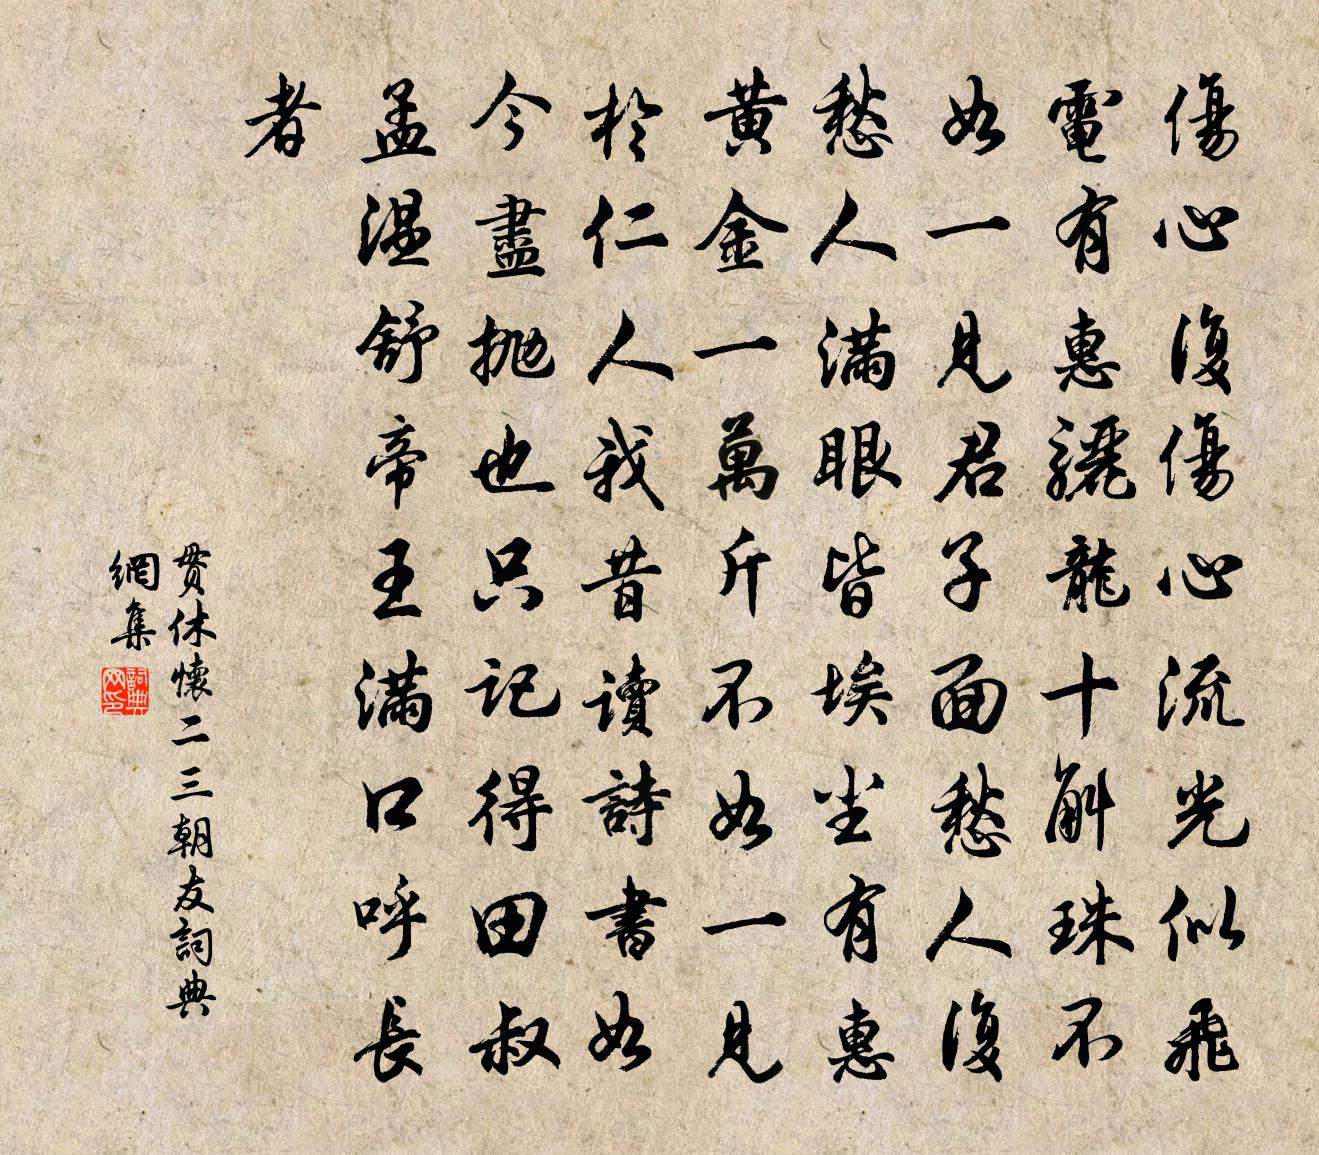 傷心復傷心流光似飛
電有惠驪龍十斛珠不
如一見君子面愁人復
愁人滿眼皆埃尘有惠
黃金一萬斤不如一見
於仁人我昔讀詩書如
今盡拋也只記得田叔
孟溫舒帝王滿口呼長
者
貫休懷二三朝友詞典
網集
詞典網印